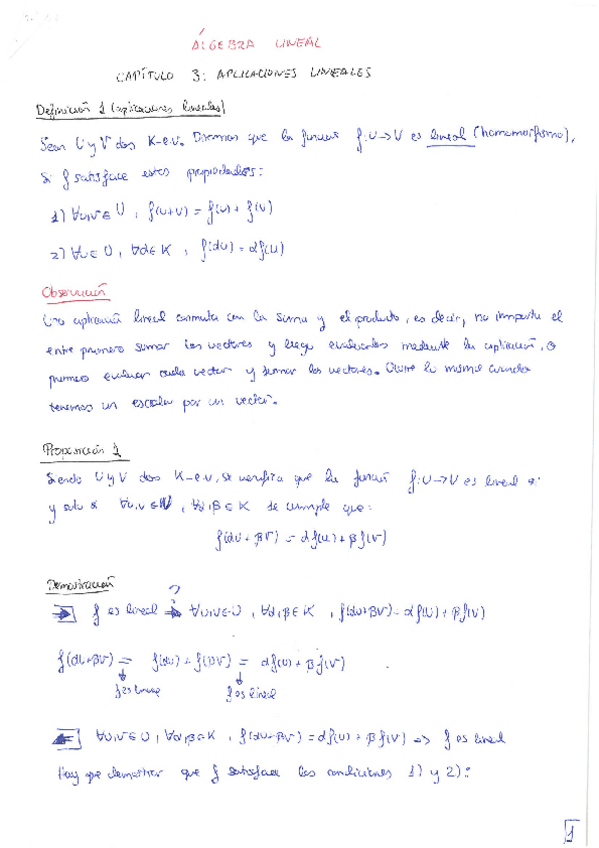 ÁLGEBRA LINEAL
CAPÍTULO 3: APLICACIONES LINEALES
Definición 1 (aplicaciones lineales)
Sean U y V dos K-e.v. Diremos que la función f: U→V es lineal (homomorfismo),
si f satisface estas propiedades:
1) ∀u,v∈U, f(u+v) = f(u) + f(v)
2) ∀u∈U, ∀α∈K, f(αu) = αf(u)
Observación
Una aplicación lineal conmuta con la suma y el producto, es decir, no importa el
entre primero sumar los vectores y luego evaluarlos mediante la aplicación, o
primero evaluar cada vector y sumar los vectores. Ocurre lo mismo cuando
tenemos un escalar por un vector.
Proposición 1
Siendo U y V dos K-e.v, se verifica que la función f: U→V es lineal si
y solo si ∀u,v∈U, ∀α,β∈K se cumple que:
f(αu + βv) = αf(u) + βf(v)
Demostración
⇒ f es lineal ⇒ ∀u,v∈U, ∀α,β∈K, f(αu+βv) = αf(u) + βf(v)
?
f(αu+βv) = f(αu) + f(βv) = αf(u) + βf(v)
f es lineal f es lineal
⇐ ∀u,v∈U, ∀α,β∈K, f(αu+βv) = αf(u) + βf(v) => f es lineal
Hay que demostrar que f satisface las condiciones 1) y 2):
1